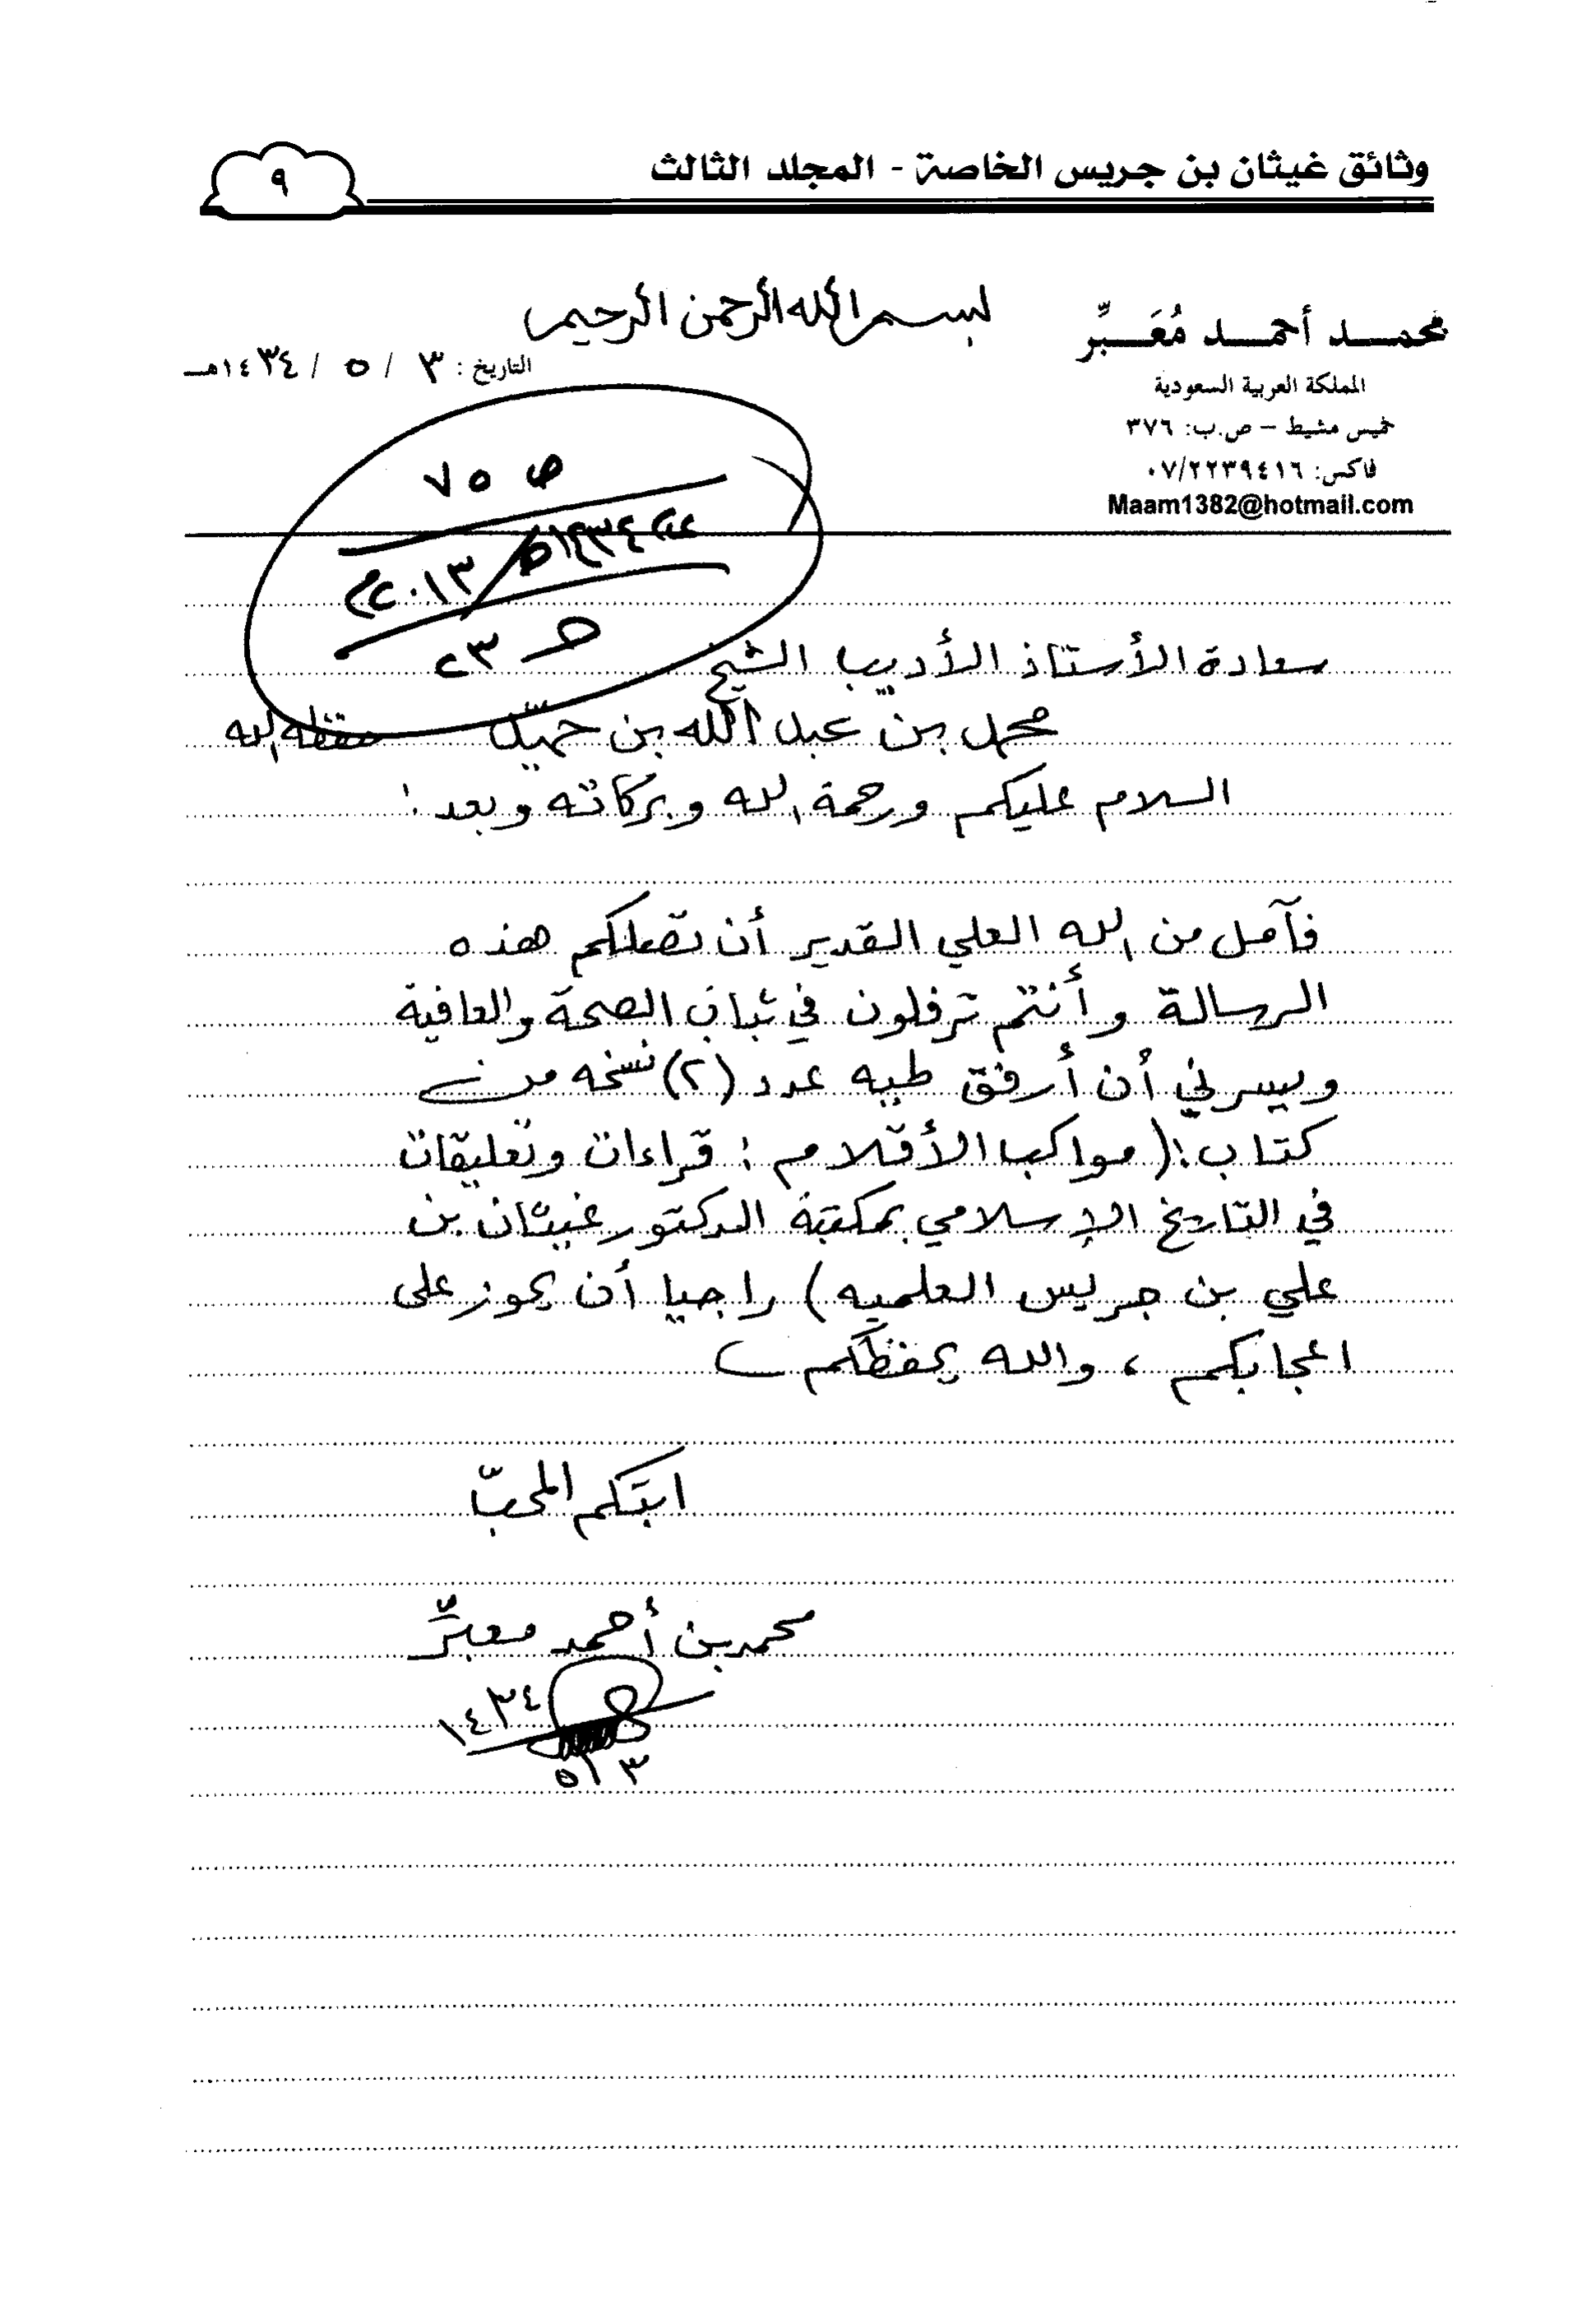 وثائق غيثان بن جريس الخاصة - المجلد الثالث
٩
بسم الله الرحمن الرحيم
محمد أحمد مُعَبِّر
المملكة العربية السعودية
خميس مشيط - ص.ب: ٣٧٦
فاكس: ٠٧/٢٢٣٩٤١٦
Maam1382@hotmail.com
التاريخ : ٣ / ٥ / ١٤٣٤هـ
ص ٧٥
١٤٣٤هـ / ٢٠١٣م
حـ ٢٣
سعادة الأستاذ الأديب الشيخ
محمد بن عبد الله بن حميّد حفظه الله
السلام عليكم ورحمة الله وبركاته وبعد :
فآمل من الله العلي القدير أن تصلكم هذه
الرسالة وأنتم ترفلون في ثياب الصحة والعافية
ويسرني أن أرفق طيه عدد (٢) نسخه من
كتاب : (مواكب الأقلام : قراءات وتعليقات
في التاريخ الإسلامي بمكتبة الدكتور غيثان بن
علي بن جريس العلميه) راجيا أن يحوز على
اعجابكم ، والله يحفظكم
ابنكم المحبّ
محمد بن أحمد معبّر
١٤٣٤
٥/٣